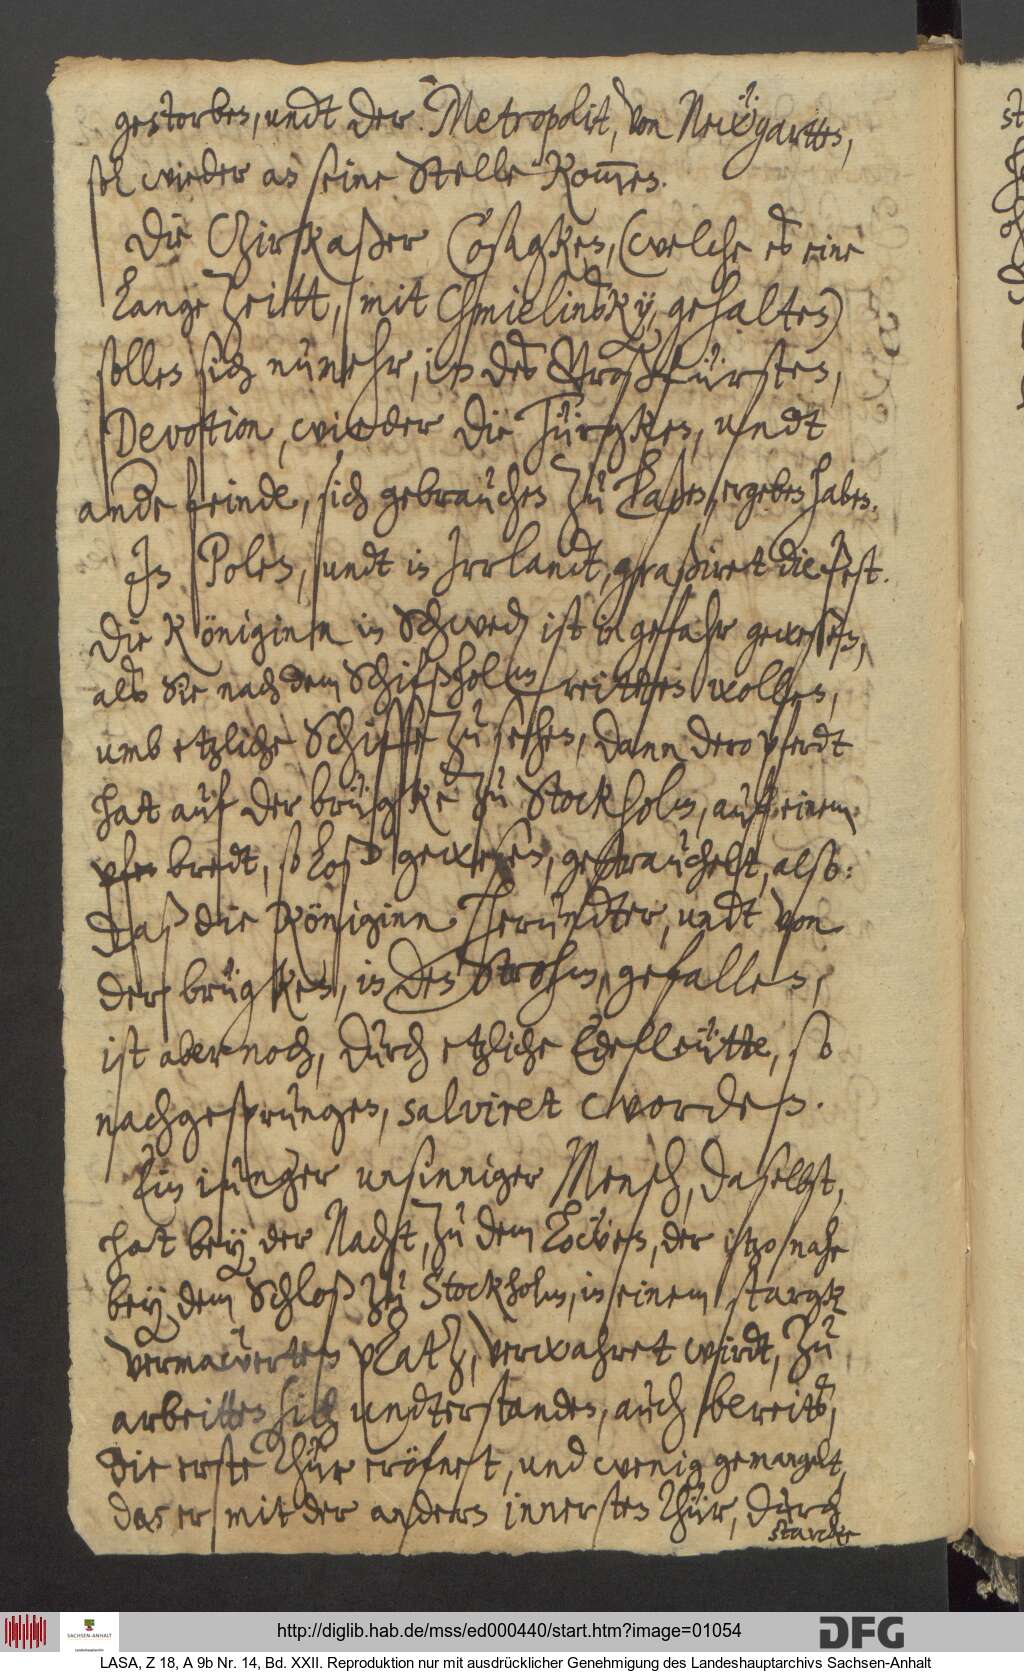 gestorben, undt der Metropolit, von Neẅgartten,
sol wieder an seine Stelle kom̅en.
Die Chirkaßer Cosagken, (welche es eine
Lange Zeitt, mit Chmielinsky, gehalten)
sollen sich nunmehr, in des Großfürsten,
Devotion, wieder die Türgken, undt
andere feinde, sich gebrauchen zu Laßen, ergeben haben.
In Polen, undt in Irrlandt, graßiret die Pest.
Die Königinn in Schweden ist in gefahr gewesen,
als Sie nach dem Schifsholm reitten wollen,
umb etzliche Schiffe zu sehen, dann dero pferdt
hat auf der brügke zu Stockholm, auf einem
bredt, so Loß gewesen, gestrauchelt, also:
daß die Königinn herundter, undt von
der brügken, in den Strohm, gefallen,
ist aber noch, durch etzliche Edelleütte, so
nachgesprungen, salviret worden.
Ein iunger unsinniger Mensch, daselbst,
hat bey der Nacht, zu dem Löẅen, der itzo nahe
bey dem Schloß zu Stockholm, in einem stargk
vermaurten platz, verwahret wirdt, zu
arbeitten sich undterstanden, auch bereits,
die erste Thür eröfnet, und wenig gemangelt,
das er mit der andern innersten Thür, durch
starcke
http://diglib.hab.de/mss/ed000440/start.htm?image=01054
DFG
SACHSEN-ANHALT
Landeshauptarchiv
LASA, Z 18, A 9b Nr. 14, Bd. XXII. Reproduktion nur mit ausdrücklicher Genehmigung des Landeshauptarchivs Sachsen-Anhalt